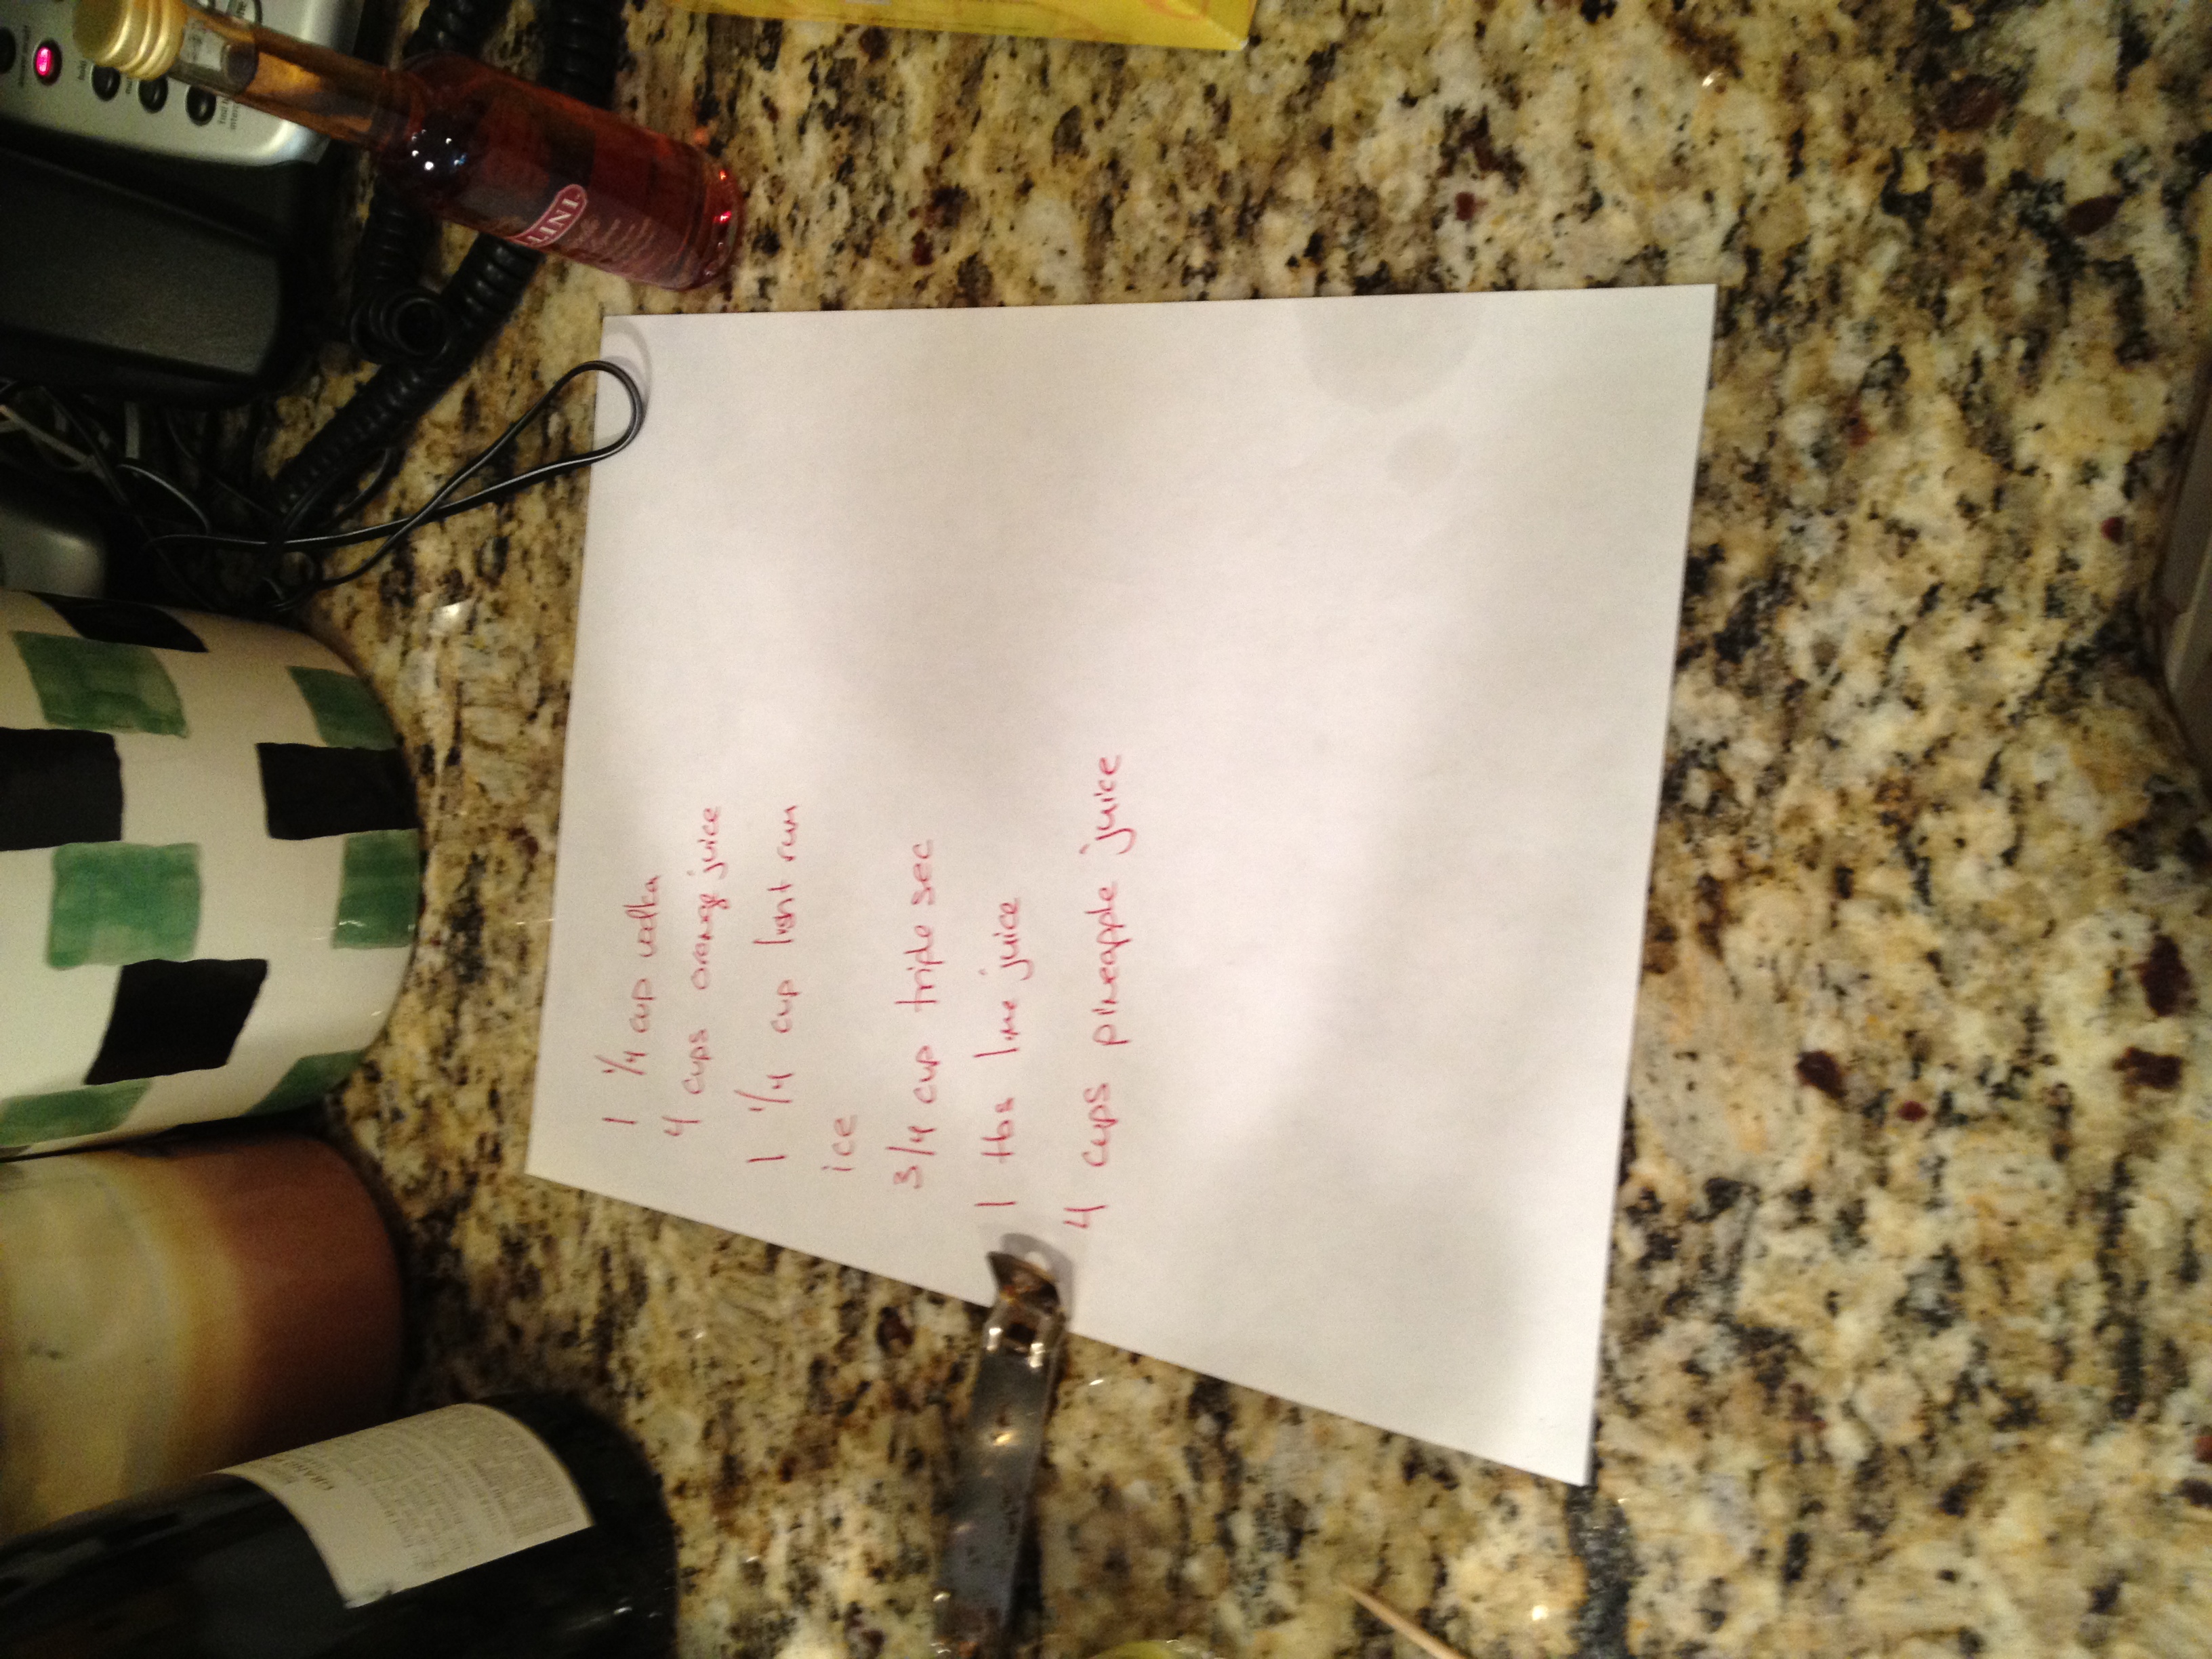 1 1/4 cup vodka
4 cups orange juice
1 1/4 cup light rum
ice
3/4 cup triple sec
1 tbs lime juice
4 cups pineapple juice
LINI